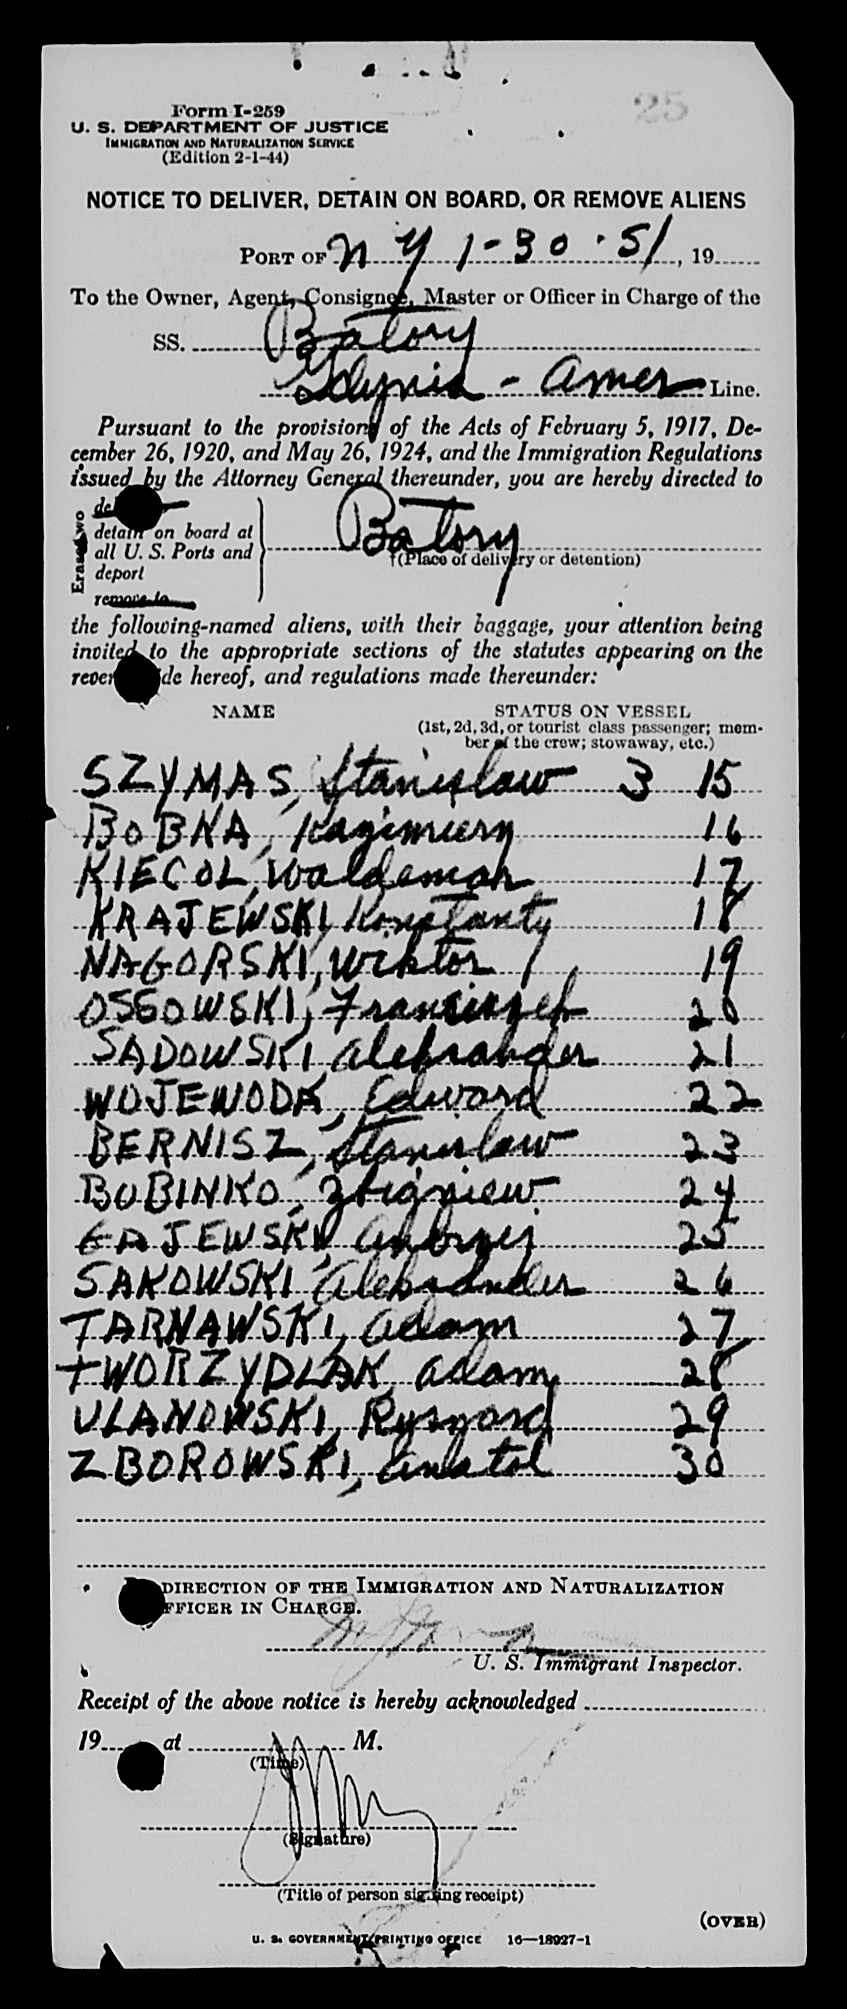 25
Form I-259
U. S. DEPARTMENT OF JUSTICE
IMMIGRATION AND NATURALIZATION SERVICE
(Edition 2-1-44)
NOTICE TO DELIVER, DETAIN ON BOARD, OR REMOVE ALIENS
PORT OF N Y 1-30-51, 19
To the Owner, Agent, Consignee, Master or Officer in Charge of the
SS. Batory
Gdynia - Amer Line.
Pursuant to the provisions of the Acts of February 5, 1917, De-
cember 26, 1920, and May 26, 1924, and the Immigration Regulations
issued by the Attorney General thereunder, you are hereby directed to
Erase two
detain on board at
all U. S. Ports and
deport
remove to
Batory
†(Place of delivery or detention)
the following-named aliens, with their baggage, your attention being
invited to the appropriate sections of the statutes appearing on the
hereof, and regulations made thereunder:
NAME STATUS ON VESSEL
(1st, 2d, 3d, or tourist class passenger; mem-
ber of the crew; stowaway, etc.)
SZYMAS, Stanislaw 3 15
BOBNA, Kazimierz 16
KIECOL, Waldemar 17
KRAJEWSKI, Konstanty 18
NAGORSKI, Wiktor 19
OSSOWSKI, Franciszek 20
SADOWSKI, Aleksander 21
WOJEWODA, Edward 22
BERNISZ, Stanislaw 23
BUBINKO, Zbigniew 24
GAJEWSKI, Andrzej 25
SAKOWSKI Aleksander 26
TARNAWSKI, Adam 27
TWORZYDLAK, Adam 28
ULANOWSKI, Ryszard 29
ZBOROWSKI, Anatol 30
DIRECTION OF THE IMMIGRATION AND NATURALIZATION
OFFICER IN CHARGE.
U. S. Immigrant Inspector.
Receipt of the above notice is hereby acknowledged
19 at M.
(Time)
(Signature)
(Title of person signing receipt)
(OVER)
U. S. GOVERNMENT PRINTING OFFICE 16—18927-1